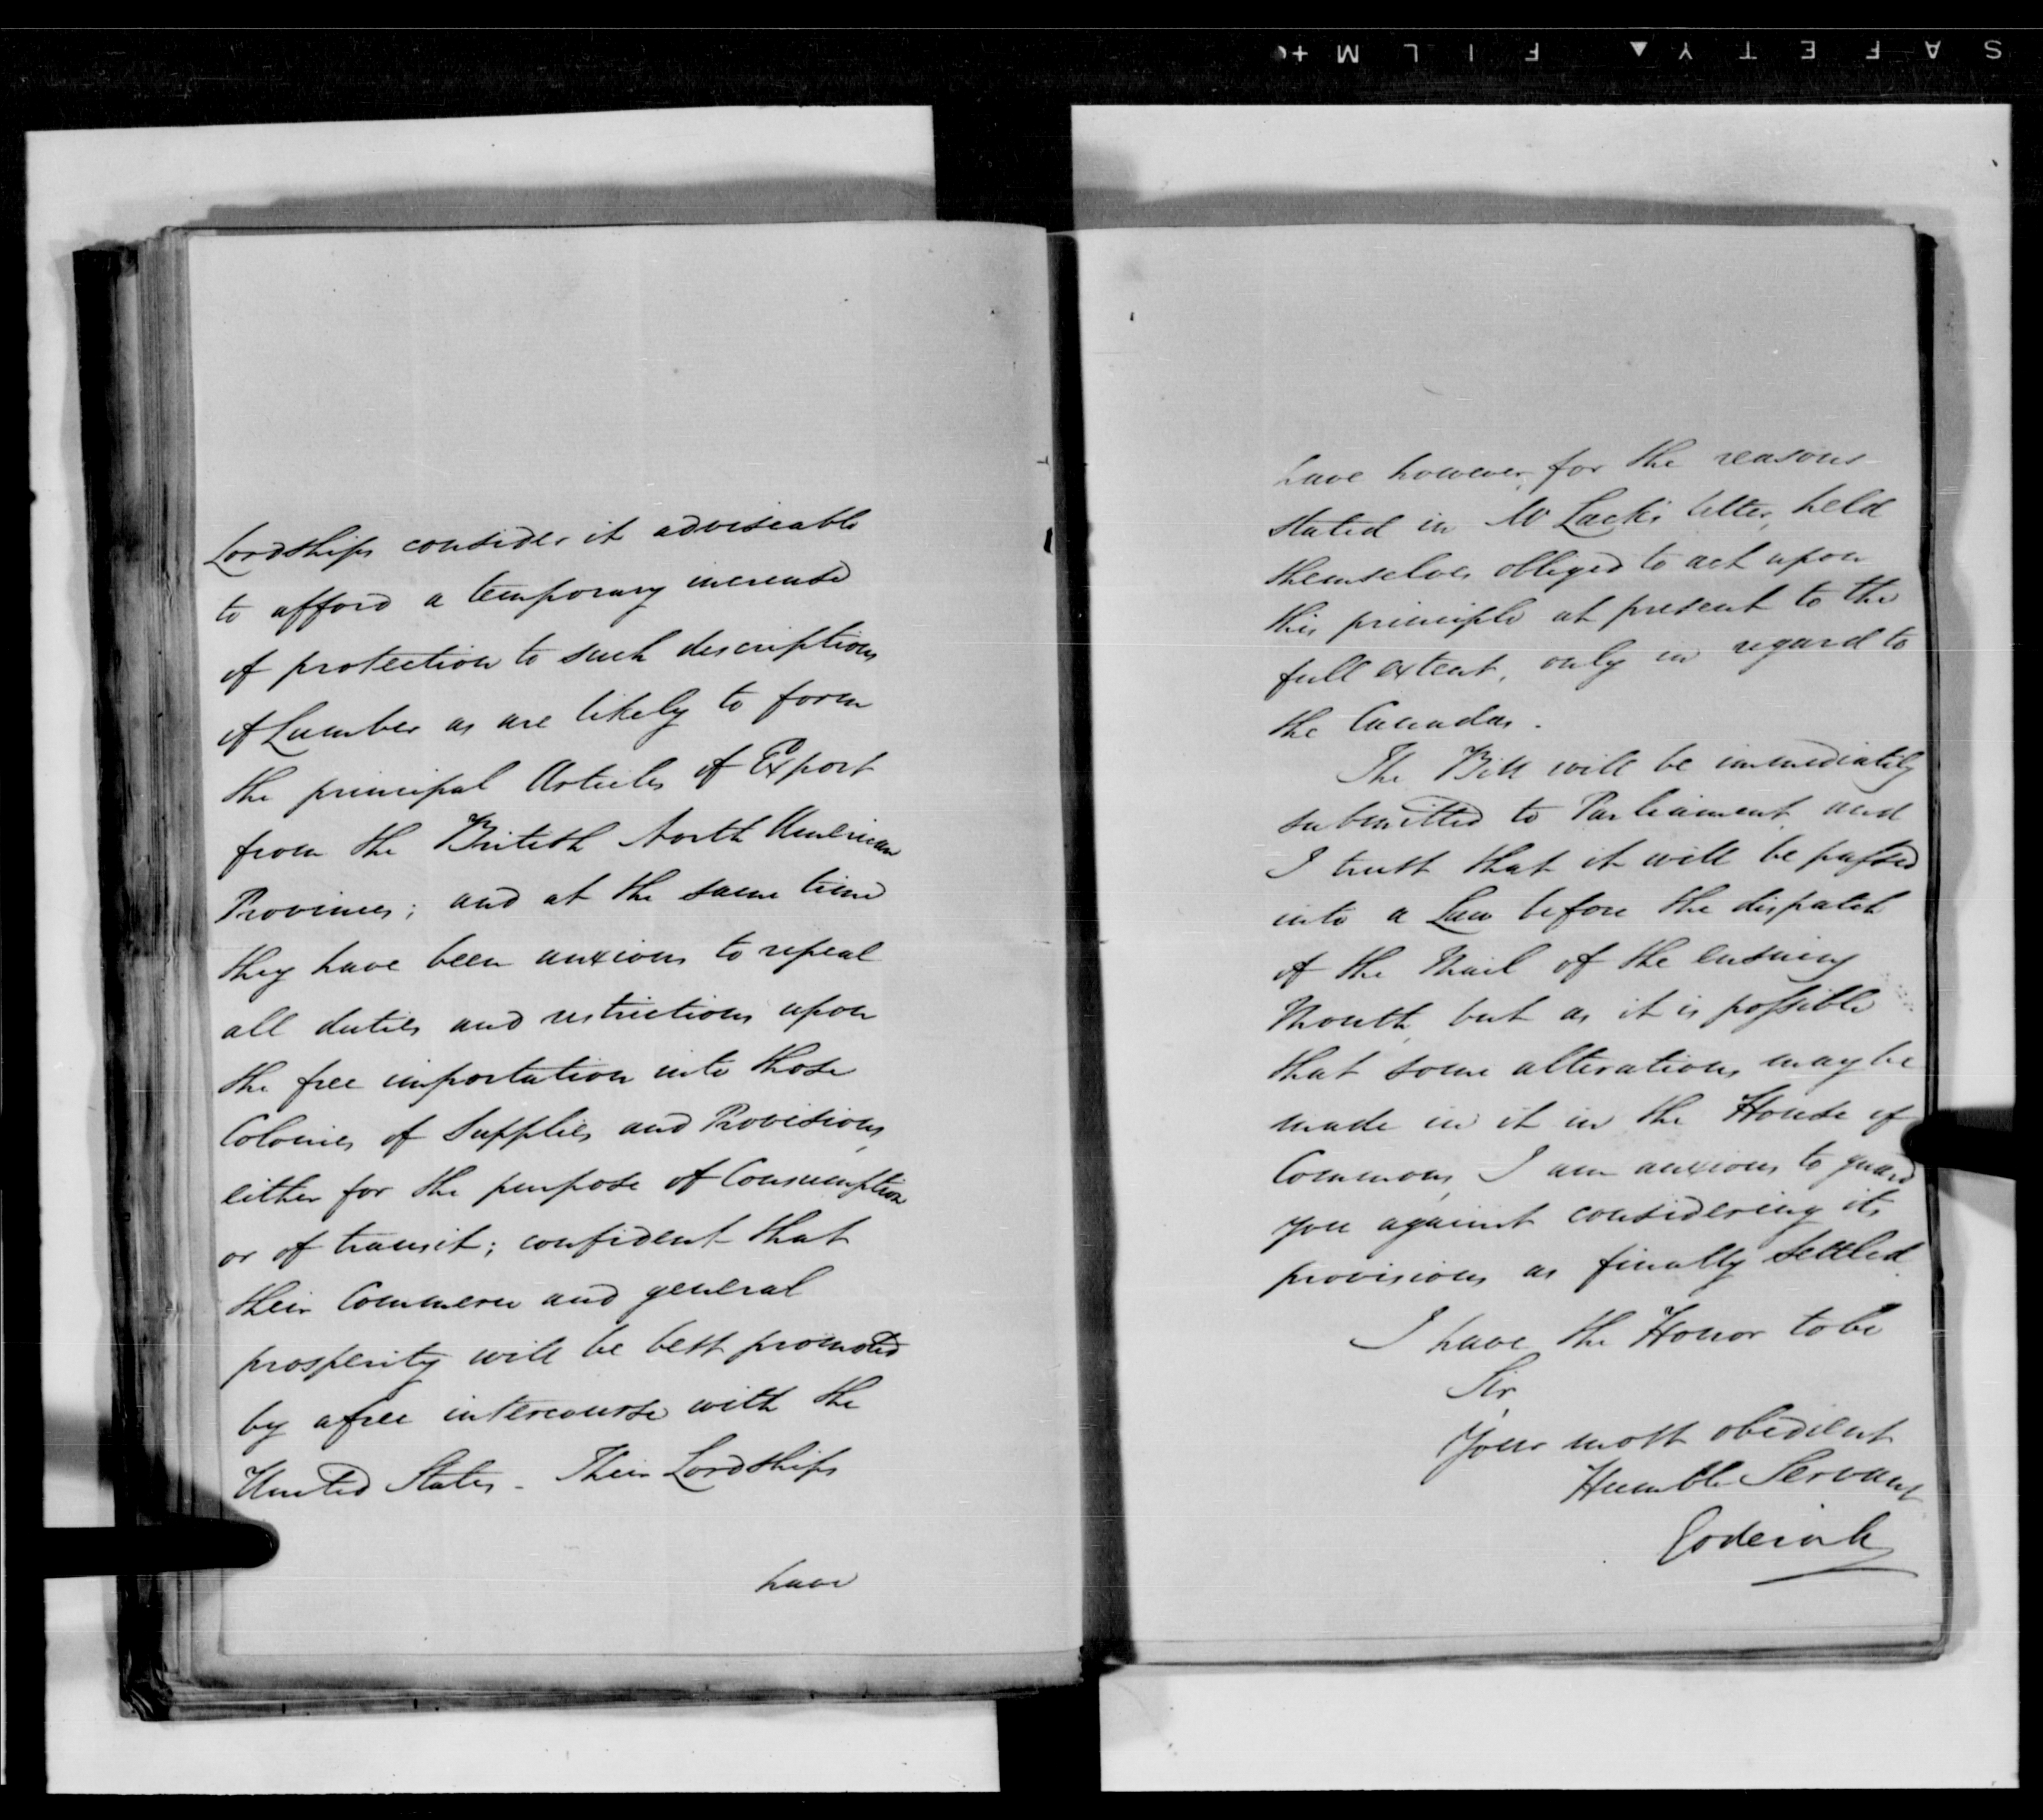 SAFETY▲ FILM+
Lordships consider it adviseable
to afford a temporary increase
of protection to such descriptions
of Lumber as are likely to form
the principal Articles of Export
from the British North American
Provinces; and at the same time
they have been anxious to repeal
all duties and restrictions upon
the free importation into those
Colonies of Supplies and Provisions,
either for the purpose of Consumption
or of transit; confident that
their Commerce and general
prosperity will be best promoted
by a free intercourse with the
United States. Their Lordships
have
have however, for the reasons
stated in Mr Lack's letter, held
themselves obliged to act upon
this principle at present to the
full extent, only in regard to
the Canadas.
The Bill will be immediately
submitted to Parliament, and
I trust that it will be passed
into a Law before the dispatch
of the Mail of the ensuing
Month, but as it is possible
that some alterations may be
made in it in the House of
Commons, I am anxious to guard
you against considering its
provisions as finally settled.
I have the Honor to be
Sir,
Your most obedient
Humble Servant
Goderich